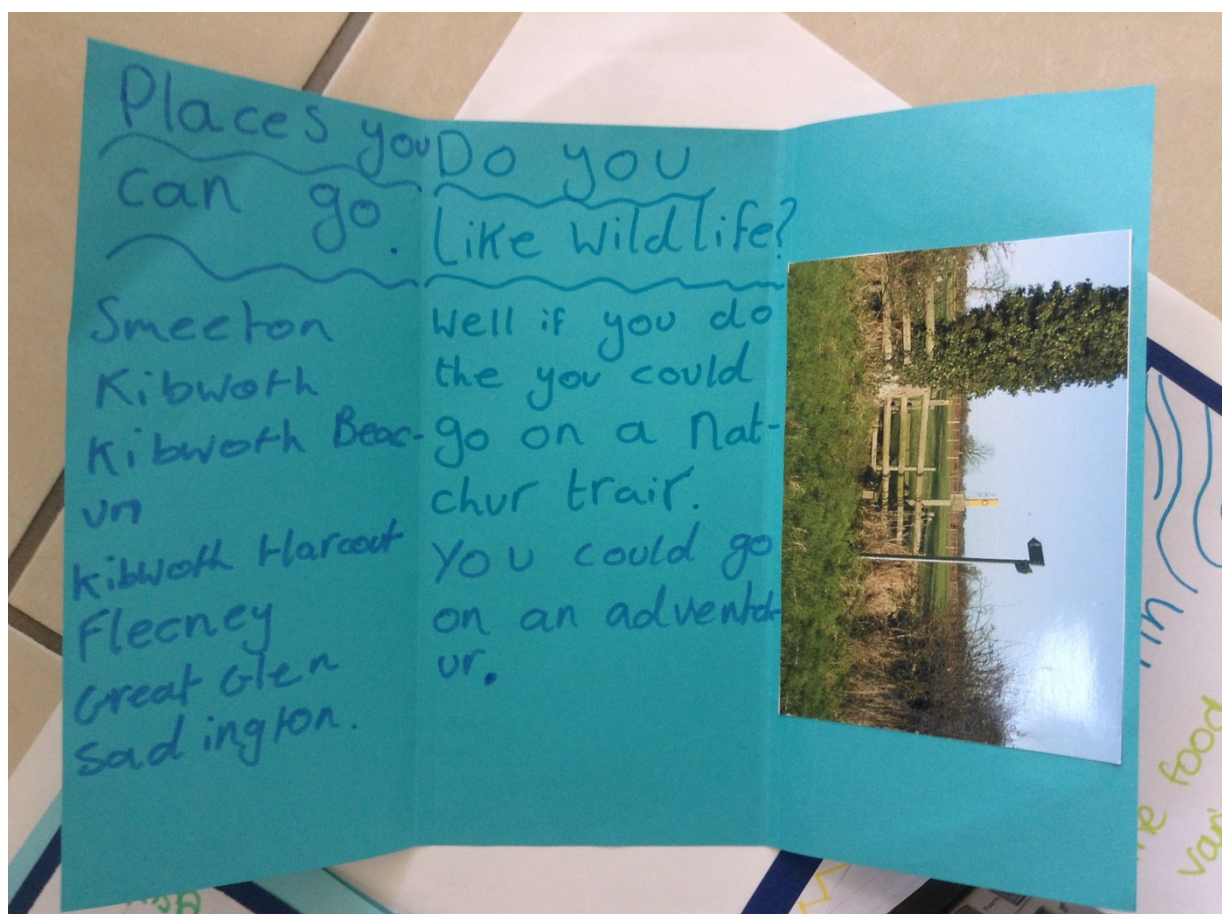 Places you
can go.
Smeeton
Kibworth
Kibworth Beac-
un
Kibworth Harcout
Flecney
Great Glen
Sadington.
Do you
like wildlife?
Well if you do
the you could
go on a Nat-
chur trair.
You could go
on an adventch-
ur.
in
food